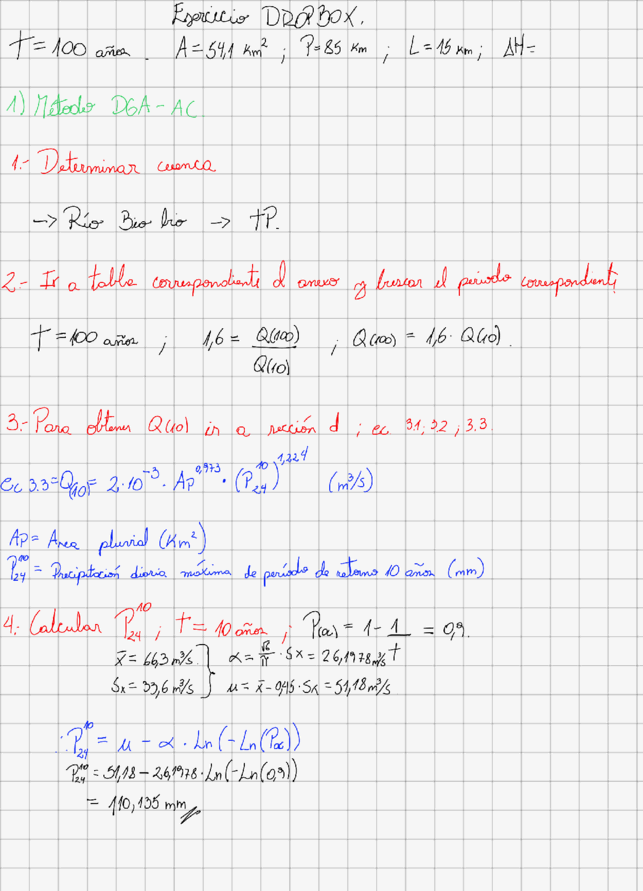 Ejercicio DROPBOX.
T = 100 años . A = 54,1 km² ; P = 85 km ; L = 15 km ; ΔH =
1) Método DGA - AC
1.- Determinar cuenca
→ Río Bio bio → TP.
2.- Ir a tabla correspondiente d anexo y buscar el periodo correspondiente
T = 100 años ; 1,6 = Q(100) / Q(10) ; Q(100) = 1,6 · Q(10).
3.- Para obtener Q(10) ir a sección d ; ec 3.1; 3.2 ; 3.3.
ec 3.3 = Q(10) = 2·10⁻³ · Ap^0,973 · (P₂₄^10)^1,224 (m³/s)
Ap = Area pluvial (Km²)
P₂₄^10 = Precipitación diaria máxima de período de retorno 10 años (mm)
4.- Calcular P₂₄^10 ; T = 10 años ; P(x) = 1 - 1/T = 0,9.
x̄ = 66,3 m³/s } α = √6/π · Sx = 26,1978 m³/s
Sx = 33,6 m³/s } μ = x̄ - 0,45 · Sx = 51,18 m³/s
∴ P₂₄^10 = μ - α · Ln(-Ln(Px))
P₂₄^10 = 51,18 - 26,1978 · Ln(-Ln(0,9))
= 110,135 mm